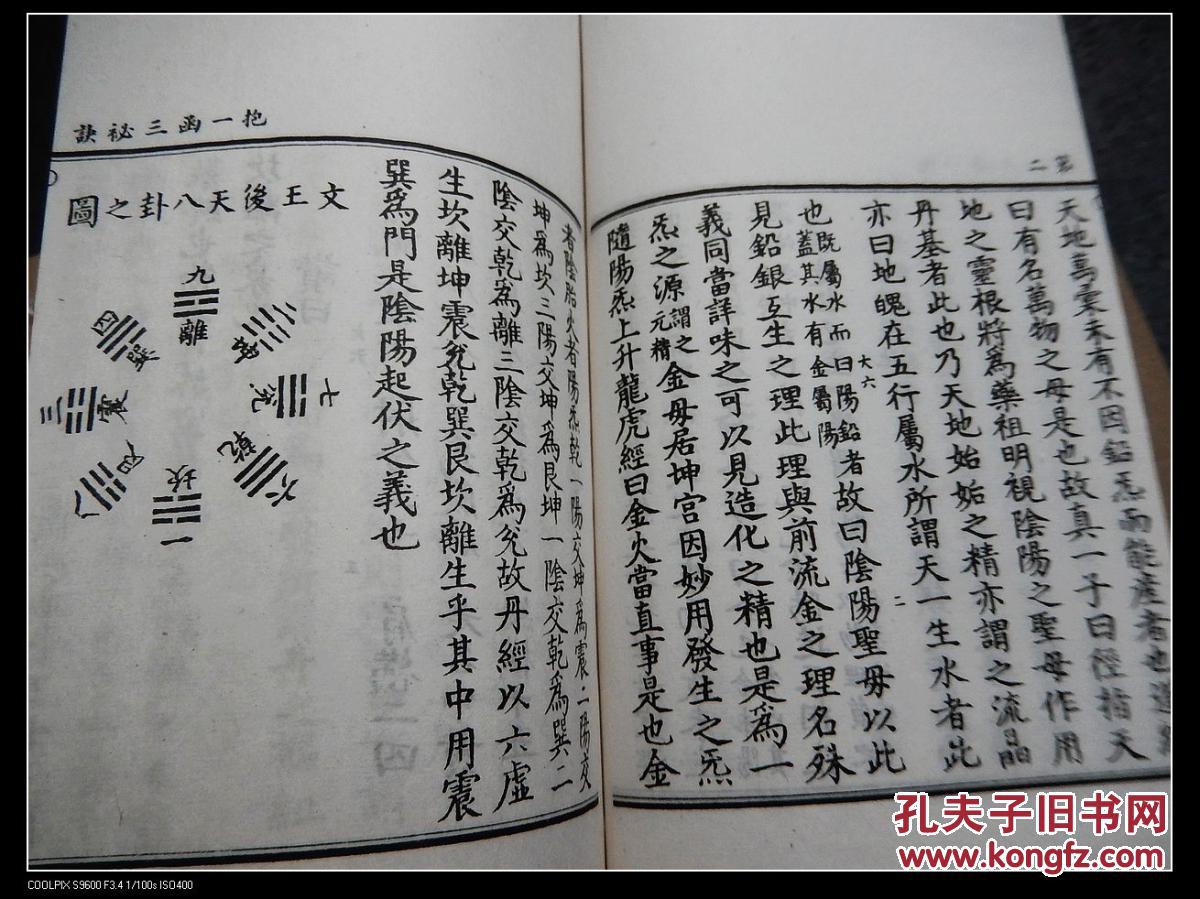 二
天地萬彙未有不因鉛炁而能產者也
曰有名萬物之母是也故真一子曰徑指天
地之靈根將為藥祖明視陰陽之聖母作用
丹基者此也乃天地始姤之精亦謂之流晶
亦曰地魄在五行屬水所謂天一生水者此
也既屬水而曰陽鉛者故曰陰陽聖母以此
蓋其水有金屬陽
大六
二
見鉛銀互生之理此理與前流金之理名殊
義同當詳味之可以見造化之精也是為一
炁之源謂之元精金母居坤宮因妙用發生之炁
隨陽炁上升龍虎經曰金火當直事是也金
抱一函三祕訣
者陰胎火者陽炁乾一陽交坤為震二陽交
坤為坎三陽交坤為艮坤一陰交乾為巽二
陰交乾為離三陰交乾為兌故丹經以六虛
生坎離坤震兌乾巽艮坎離生乎其中用震
巽為門是陰陽起伏之義也
文王後天八卦之圖
九
離
四
巽
坤
三
震
七
兌
八
六
乾
坎
一
孔夫子旧书网
www.kongfz.com
COOLPIX S9600 F3.4 1/100s ISO400